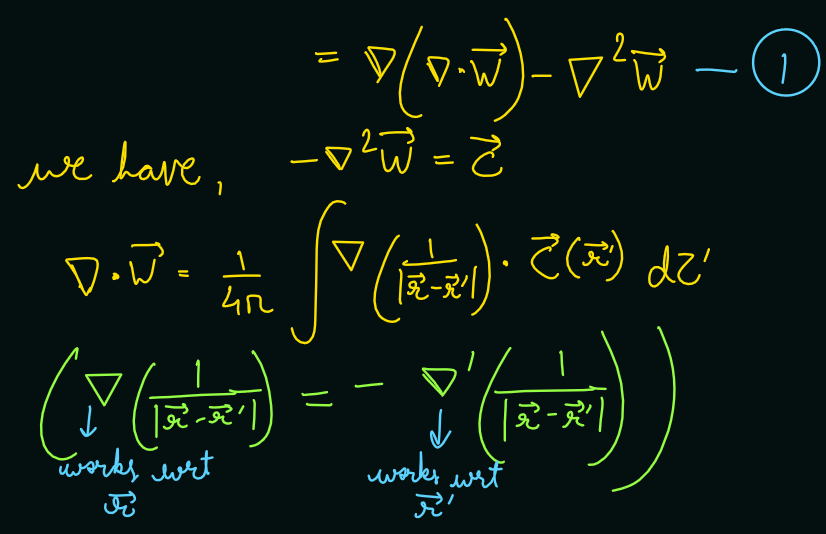 = ∇(∇·W⃗) − ∇²W⃗ — ①
we have, −∇²W⃗ = C⃗
∇·W⃗ = 1/4π ∫ ∇(1/|r⃗−r⃗'|)· C⃗(r⃗') dτ'
(∇(1/|r⃗−r⃗'|) = − ∇'(1/|r⃗−r⃗'|))
works wrt r⃗
works wrt r⃗'